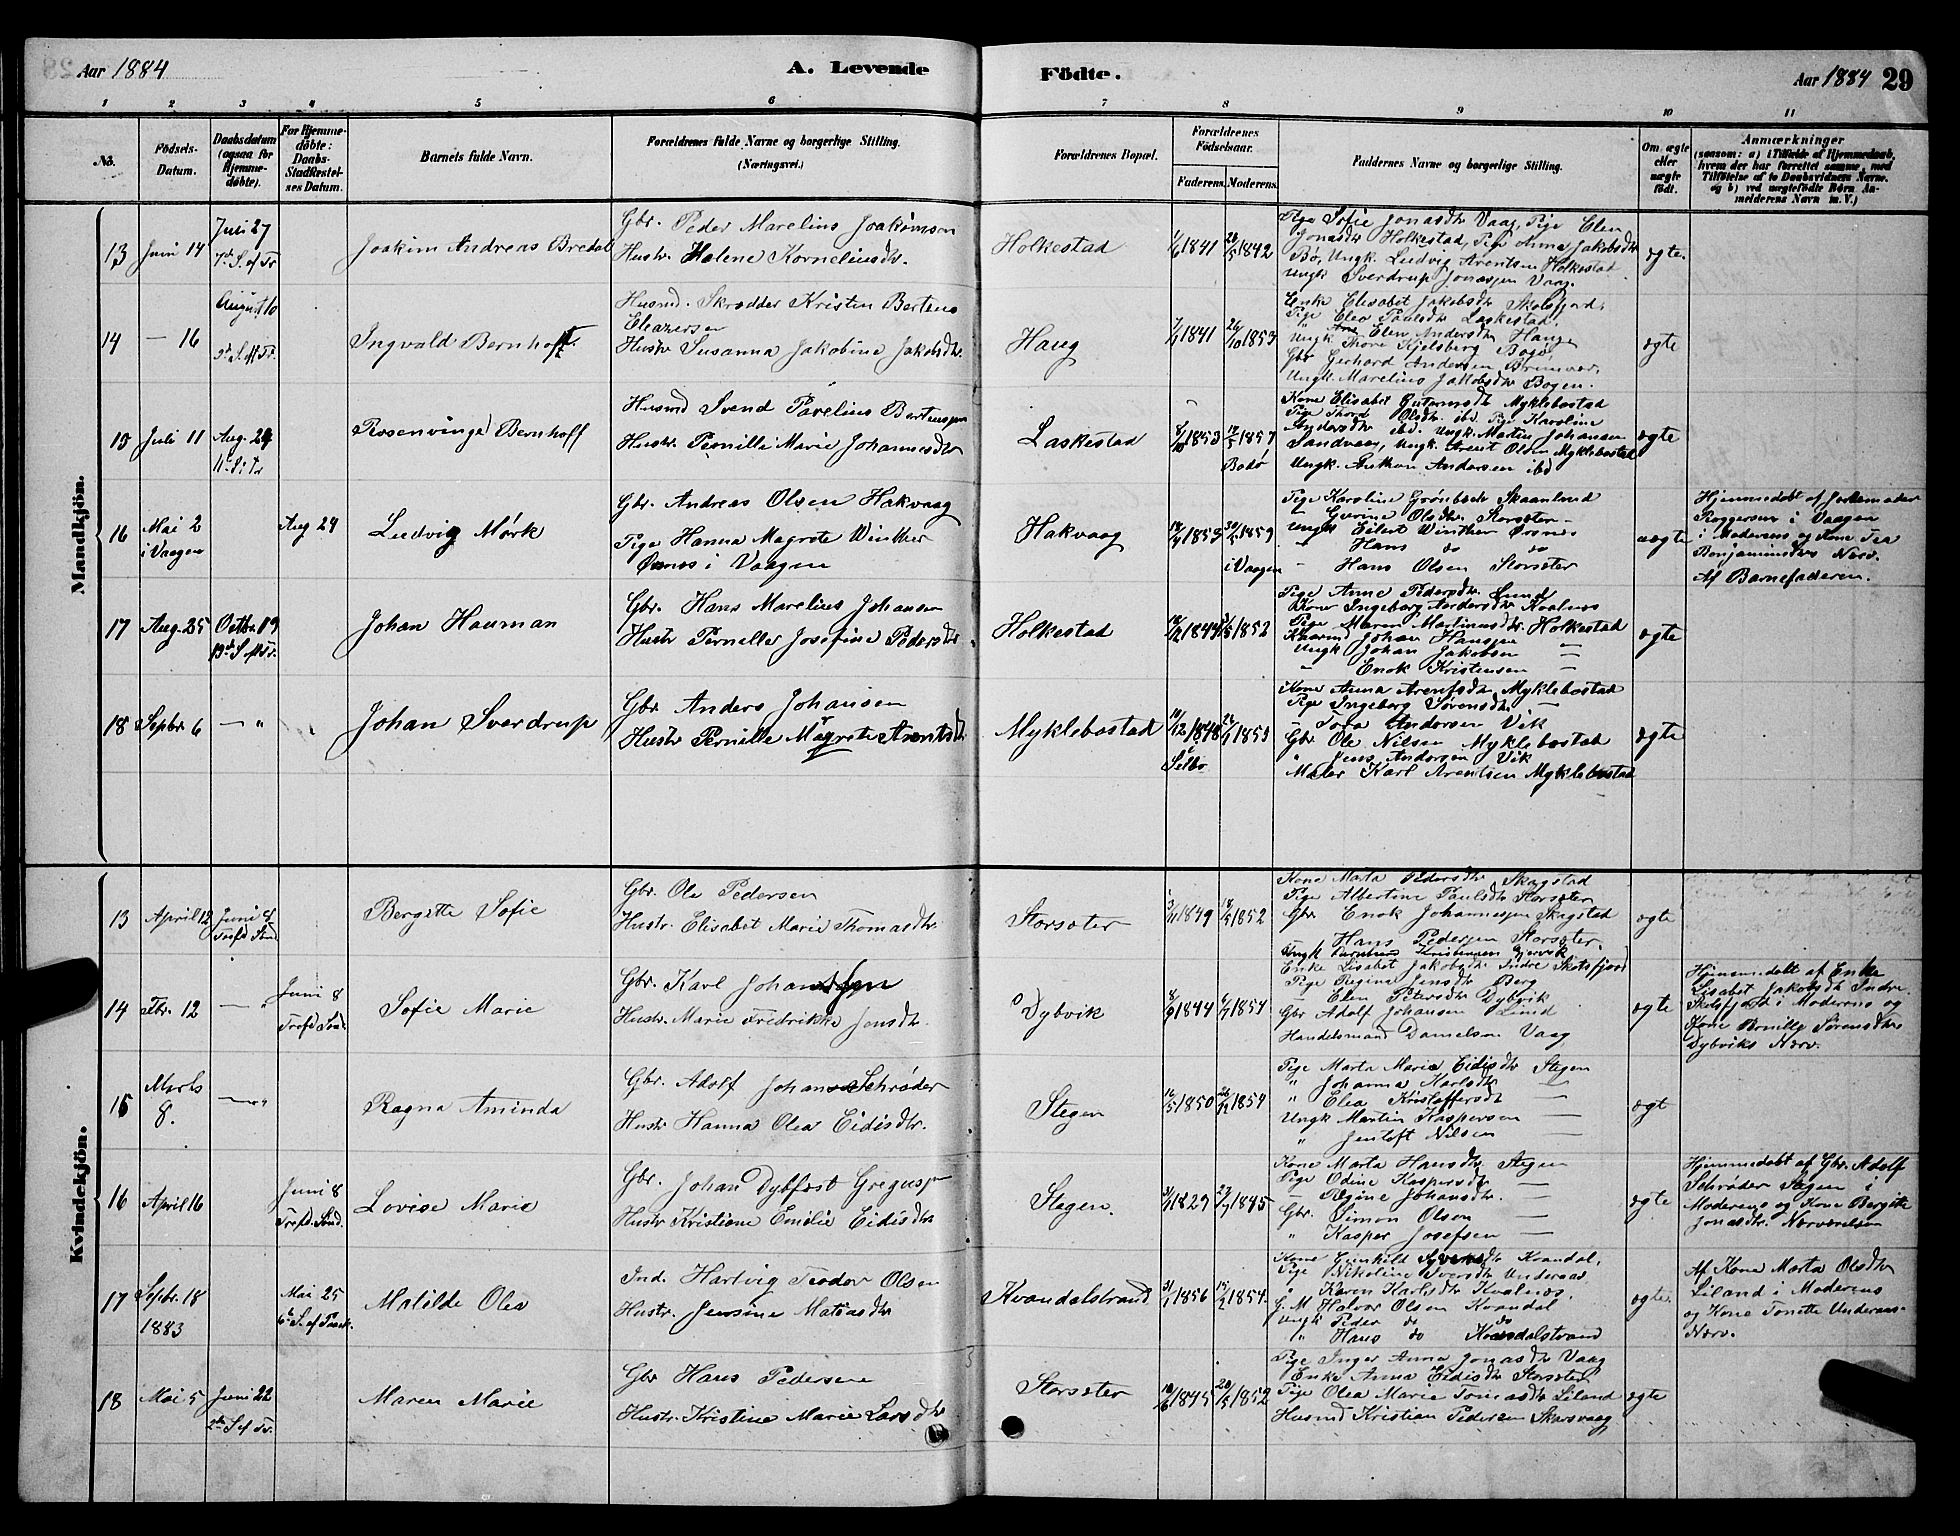 Aar 1884
A. Levende
Födte.
Aar 1884 29
1 2 3 4 5 6 7 8 9 10 11
No.
Födsels-Datum.
Daabsdatum (ogsaa for Hjemme-döbte).
For Hjemme-döbte: Daabs-Stadfæstel-ses Datum.
Barnets fulde Navn.
Forældrenes fulde Navne og borgerlige Stilling. (Næringsvei.)
Forældrenes Bopæl.
Forældrenes Födselsaar.
Faderens. Moderens.
Faddernes Navne og borgerlige Stilling.
Om ægte eller uægte födt.
Anmærkninger
(saasom: a) i Tilfælde af Hjemmedaab, hvem der har forrettet samme, med Tilföielse af to Daabsvidners Navne. og b) ved uægtefödte Börn An-melderens Navn m. V.)
Mandkjön.
13 Juni 14
Juli 27
7d S. ef Tr
Joakim Andreas Bredal
Gbr. Peder Marelius Joakimsen
Hustr. Helene Korneliusdtr.
Holkestad
1/6 1841 1842
Pige Sofie Jonasdtr Vaag, Pige Elen
Jonasdtr Holkestad, Pige Anna Jakobsdtr
Bø, Ungk. Ludvig Arentsen Holkestad
Ungk Sverdrup Jonassen Vaag.
ægte.
14 — 16
August 10
Ingvald Bernhoft
Husmd. Skrædder Kristen Berteus
Eleazersen
Hustr Susanna Jakobine Jakobsdtr.
Haug
1841 26/10 1853
Enke Elisabet Jakobsdtr Skotsfjord,
Pige Elea Paulsdtr Laskestad,
" Elen Andersdtr Haug
Ungk Thore Kjelsberg Bogø,
Gbr Gerhard Andersen Brennvær,
Ungk. Marelius Jakobsdtr Bogen.
ægte
15 Juli 11
Aug. 24
11te S. e Tr
Rosenvinge Bernhoff
Husmd Svend Pavelius Berteussen
Hustr. Pernille Marie Johannesdtr
Laskestad
1853 1857
Bodø
Kone Elisabet Guttormsdtr Myklebostad
Pige Thora Olsdtr. ibd. Pige Karoline
Andersdtr ibd. Ungk. Martin Johansen
Sandvaag, Ungk. Arent Olsen Myklebostad
Ungk. Anthon Andersen ibd
ægte
16 Mai 2
i Vaagen
Aug 24
Ludvig Mørk
Gbr. Andreas Olsen Hakvaag
Pige Hanna Magrete Winther
Ørsnes i Vaagen
Hakvaag
1853 1859
i Vaagen
Pige Karoline Grönbech Skaanland
— Gurine Olsdtr. Storsæter —
Ungk Eilert Winther Ørsnes
" Hans do do
— Hans Olsen Storsæter
uægte
Hjemmedøbt af Jordemoder
Roggersen i Vaagen
i Moderens og Kone Tea
Benjaminsdtrs Nærv.
Af Barnefaderen.
17 Aug. 25
Octbr. 19
19de S. ef Tr.
Johan Hauman
Gbr. Hans Marelius Johansen
Hustr Pernille Josefine Pedersdtr
Holkestad
1844 1852
Pige Anne Pedersdtr Lund
Kone Ingeborg Andersdtr Kvalnes
Pige Maren Martinusdtr. Holkestad
Kaarmd Johan Hansen —
Ungk Johan Jakobsen —
— Enok Kristensen —
ægte
18 Septbr. 6
— "
Johan Sverdrup
Gbr Anders Johansen
Hustr Pernille Magrete Arentsdtr
Myklebostad
10/12 1848 1853
Selbo
Kone Anna Arentsdtr Myklebostad
Pige Ingeborg Sörensdtr —
— Tora Andersen Vik
Gbr Ole Nilsen Myklebostad
" Jens Andersen Vik
Maler Karl Arentsen Myklebostad
ægte
Kvindekjön.
13 April 12
Juni 8
Trefd. Sönd
Bergitte Sofie
Gbr. Ole Pedersen
Hustr. Elisabet Marie Thomasdtr.
Storsæter
1849 1852
Kone Marta Pedersdtr Skagstad
Pige Albertine Paulsdtr Storsæter
Gbr Enok Johannessen Skagstad
Hans Pedersen Storsæter.
Ungk Kristensen Gjervik
ægte
14 Febr. 12
— "
Juni 8
Trefd. Sönd.
Sofie Marie
Gbr. Karl Johansen
Hustr. Marie Fredrikke Jensdtr.
Dybvik
1844 1854
Enke Lisabet Jakobsdtr Indre Skotsfjord
Pige Regine Jensdtr Berg
— Elen Petersdtr Dybvik
Gbr Adolf Johansen Lund
Handelsmand Danielsen Vaag
ægte
Hjemmedøbt af Enke
Lisabet Jakobsdtr Indre
Skotsfjord i Moderens og
Kone Pernille Sørensdtr
Dybviks Nærv.
15 Marts
8.
— "
Ragna Aminda
Gbr. Adolf Johans Schrøder
Hustr Hanna Olea Eidisdtr.
Stegen
1850 1854
Pige Marta Marie Eidisdtr Stegen
" Johanna Karlsdtr —
" Elea Kristoffersdtr —
Ungk Martin Kaspersen —
" Jentoft Nilsen —
ægte
16 April 16
Juni 8
Trefd. Sönd.
Lovise Marie
Gbr. Johan Dybfest Gregussen
Hustr Kristiane Emilie Eidisdtr
Stegen.
1829 1845
Kone Marta Hansdtr Stegen
Pige Odine Kaspersdtr —
— Regine Johansdtr. —
Gbr. Simon Olsen —
" Kasper Josefsen —
ægte
Hjemmedøbt af Gbr. Adolf
Schrøder Stegen i
Moderens og Kone Bergitte
Jonasdtr. Nærværelse
17 Septbr. 18
1883
Mai 25
6te S. ef Paask.
Matilde Olea
Ind. Hartvig Teodor Olsen
Hustr. Jensine Matiasdtr
Kvandalstrand
1856 1854.
Kone Gunhild Kvandal,
Pige Nikoline Iversdtr Underaas,
" Karen Karlsdtr Kvalnes,
G.M Halvor Olsen Kvandal
Ungk Peder do do
" Hans do Kvandalstrand
ægte.
Af Kone Marta Olsdtr
Liland i Moderens
og Kone Tonette Underaas
Nærv.
18 Mai 5
Juni 22
2den S. ef Tr.
Maren Marie
Gbr Hans Pedersen
Hustr. Kristine Marie Larsdtr
Storsæter
1845 1852
Pige Inger Anna Jonasdtr Vaag
Enke Anna Eidisdtr Storsæter
Pige Olea Marie Tomasdtr Liland
Husmd Kristian Pedersen Skarsvaag
ægte